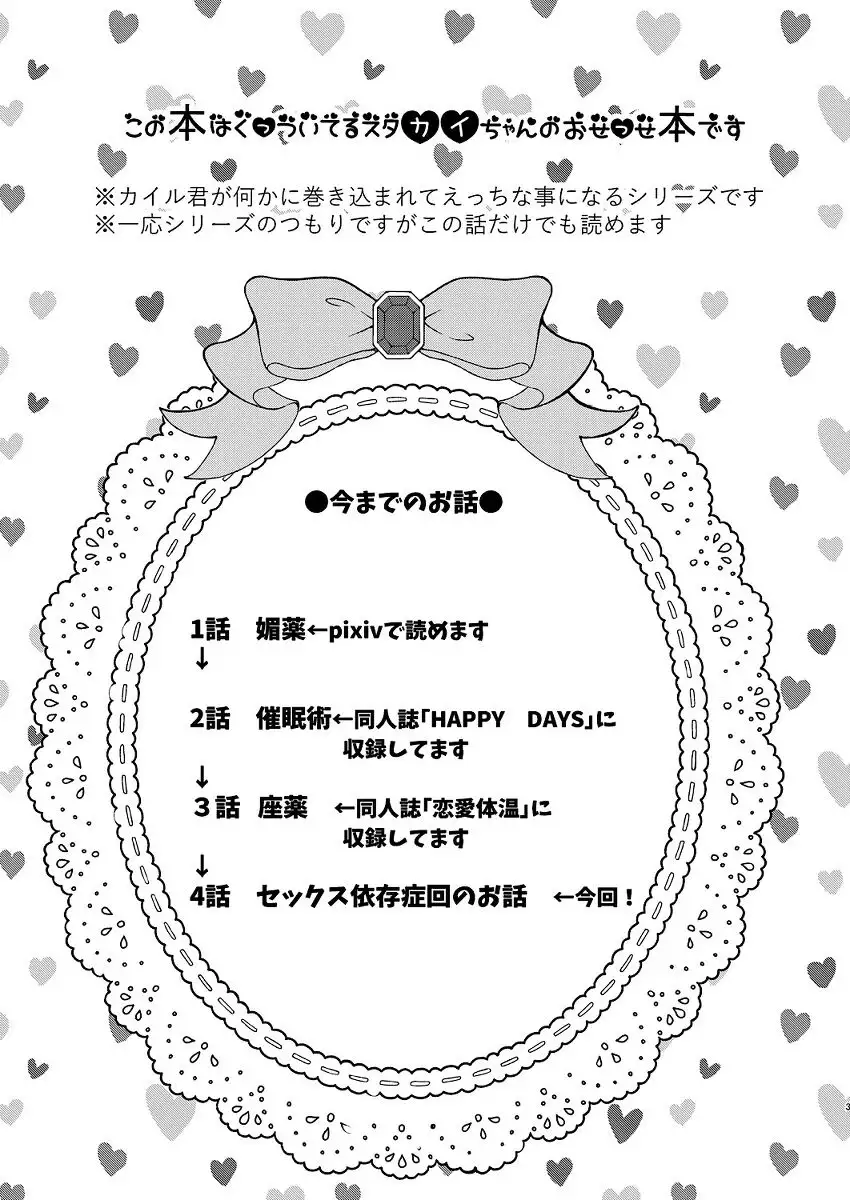 この本はくっついてるスタカイちゃんのおせっせ本です
※カイル君が何かに巻き込まれてえっちな事になるシリーズです
※一応シリーズのつもりですがこの話だけでも読めます
●今までのお話●
1話 媚薬←pixivで読めます
↓
2話 催眠術←同人誌「HAPPY DAYS」に
収録してます
↓
３話 座薬 ←同人誌「恋愛体温」に
収録してます
↓
4話 セックス依存症回のお話 ←今回！
3